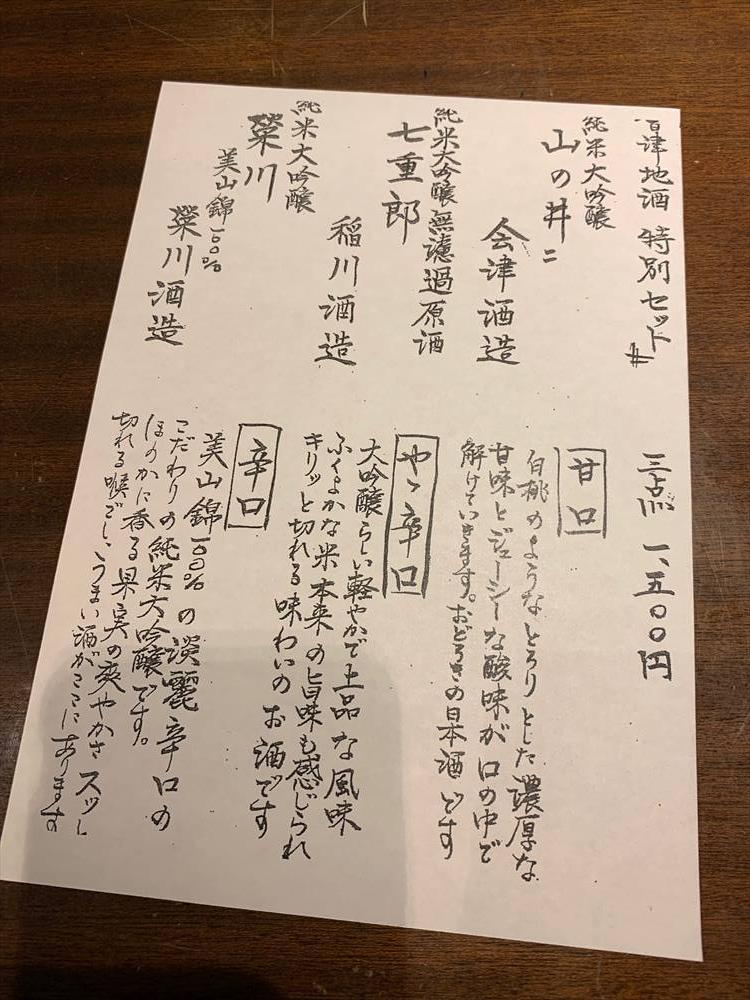 会津地酒 特別セット
三点 一、五〇〇円
純米大吟醸
山の井
会津酒造
甘口
白桃のようなとろりとした濃厚な
甘味とジューシーな酸味が口の中で
解けていきます。おどろきの日本酒です
純米大吟醸 無濾過原酒
七重郎
稲川酒造
やゝ辛口
大吟醸らしい軽やかで上品な風味
ふくよかな米本来の旨味も感じられ
キリッと切れる味わいのお酒です
純米大吟醸
榮川
美山錦一〇〇%
榮川酒造
辛口
美山錦一〇〇%の淡麗辛口の
こだわりの純米大吟醸です。
ほのかに香る果実の爽やかさ スッと
切れる喉ごし、うまい酒がここにあります